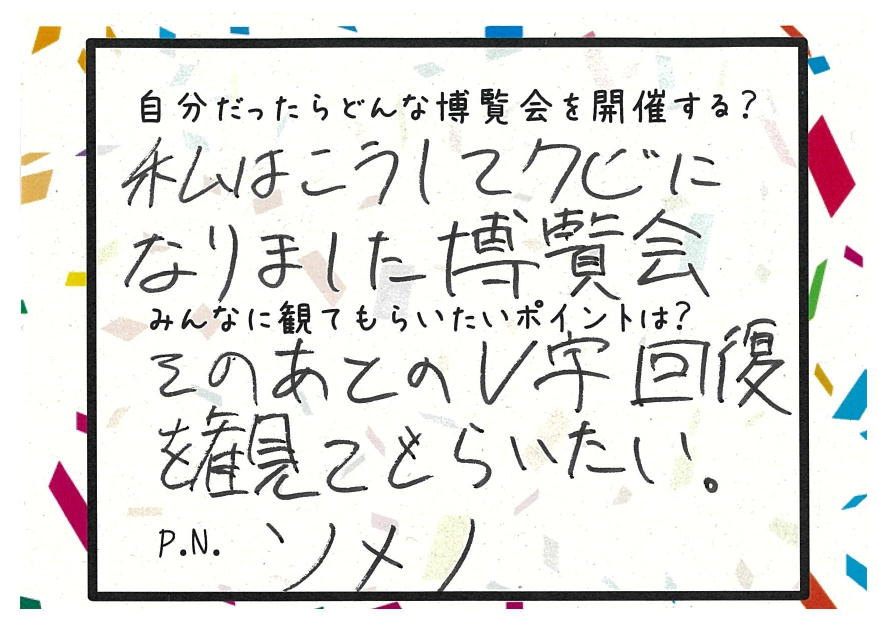 自分だったらどんな博覧会を開催する?
私はこうしてクビに
なりました博覧会
みんなに観てもらいたいポイントは?
そのあとのV字回復
を観てもらいたい。
P.N. ソメノ